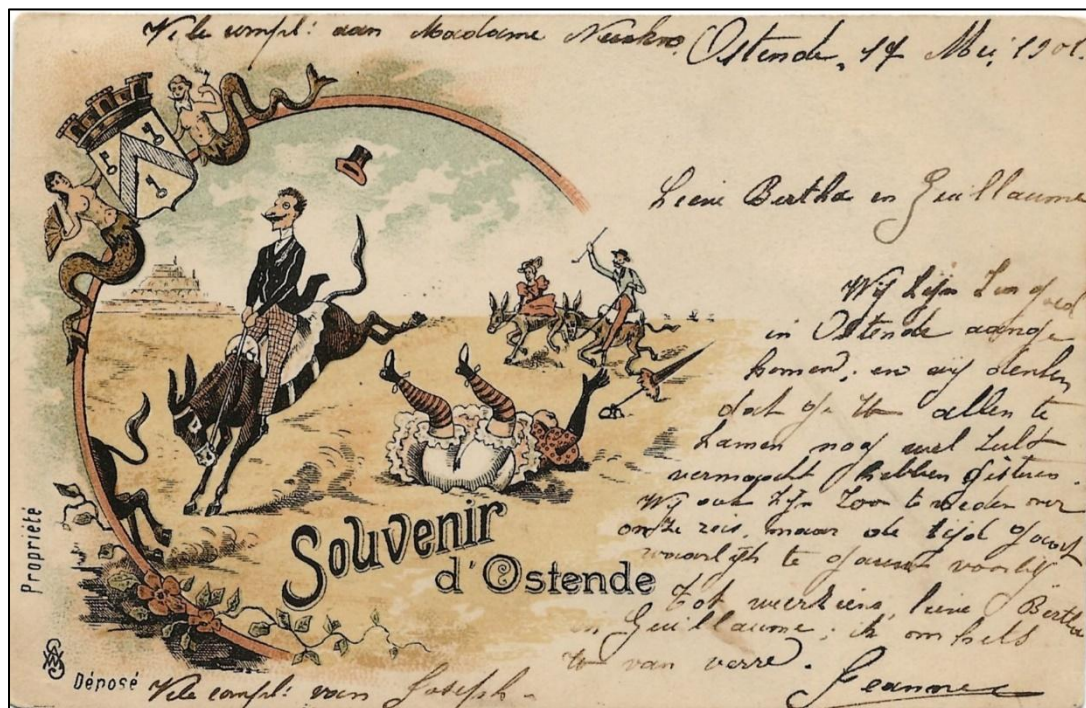 Vele compl: aan Madame
Ostende, 17 Mei, 1901.
Lieve Bertha en Guillaume
Wij zijn zeer goed
in Ostende aange
komen, en wij denken
dat ge U allen te
zamen nog wel zult
vermaakt hebben gisteren.
Wij ook zijn zoo te vreden over
onze reis, maar de tijd gaat
waarlijk te gauw voorbij
Tot weerziens, lieve Bertha
en Guillaume; ik omhels
U van verre.
Jeanne
Vele compl: van Joseph-
Souvenir
d'Ostende
Propriété
Déposé